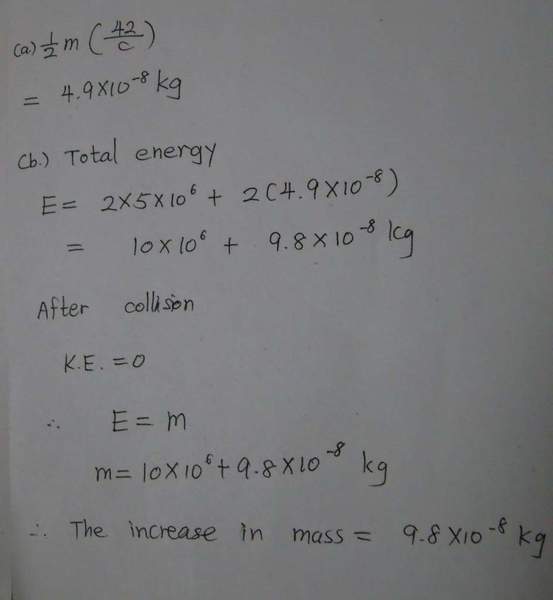 (a) ½ m (42/c)
= 4.9×10⁻⁸ kg
(b.) Total energy
E = 2×5×10⁶ + 2(4.9×10⁻⁸)
= 10×10⁶ + 9.8×10⁻⁸ kg
After collision
K.E. = 0
∴ E = m
m = 10×10⁶ + 9.8×10⁻⁸ kg
∴ The increase in mass = 9.8×10⁻⁸ kg